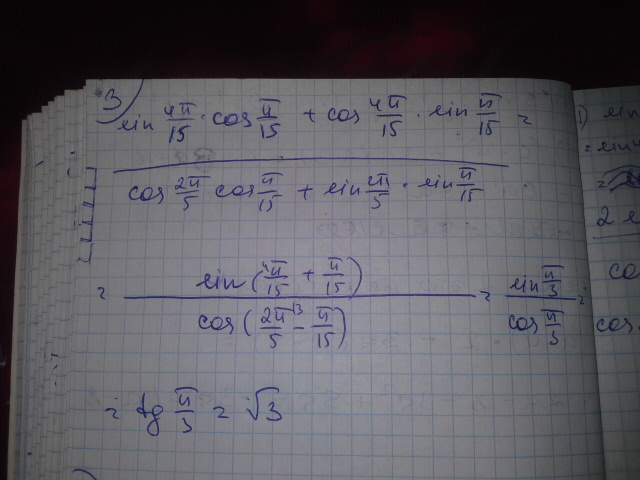 3)
sin 4π/15 · cos π/15 + cos 4π/15 · sin π/15 =
cos 2π/5 cos π/15 + sin 2π/5 · sin π/15
= sin (4π/15 + π/15) / cos (2π/5 ^3 - π/15) = sin π/3 / cos π/3 =
= tg π/3 = √3
1) sin
= sin
=
2
co
cos